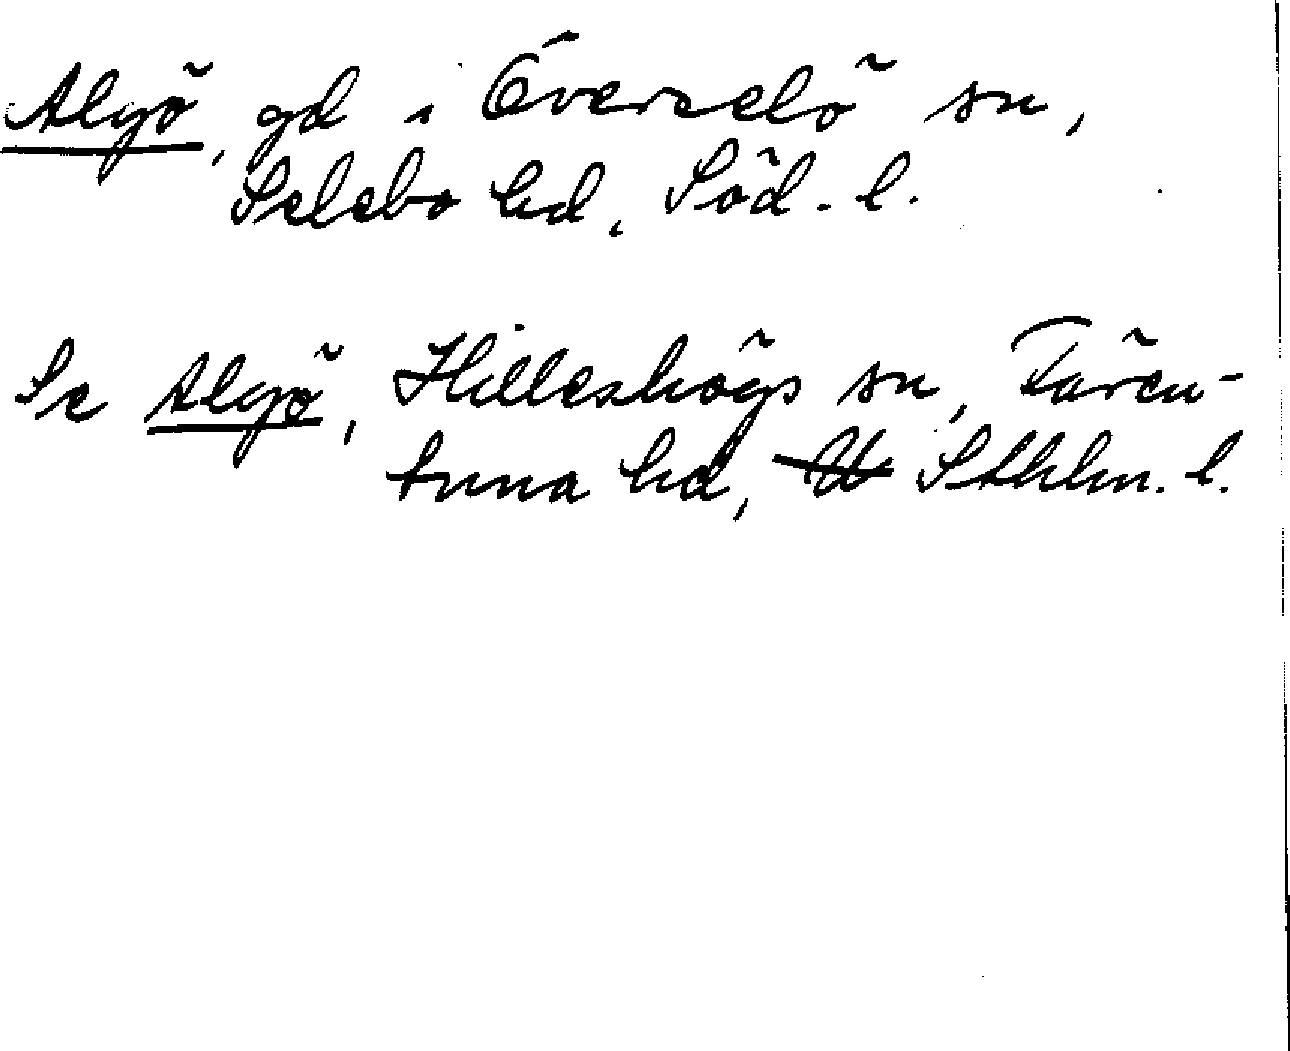 Algö, gd i Överselö sn,
Selebo hd, Söd. l.
Se Algö, Hilleshögs sn, Fären-
tuna hd, U Sthlm. l.